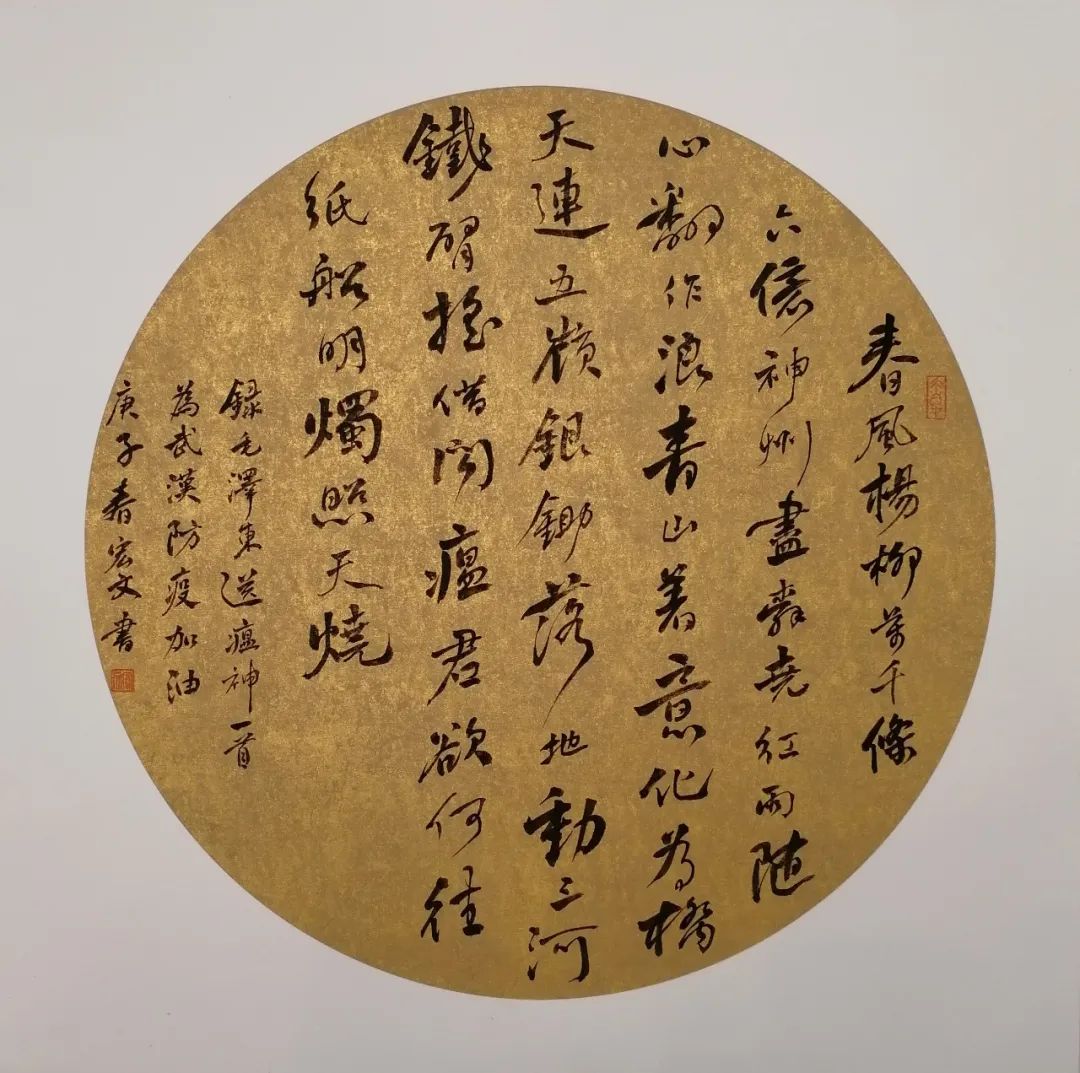 春風楊柳萬千條
六億神州盡舜堯紅雨随
心翻作浪青山着意化為橋
天連五嶺銀鋤落地動三河
鐵臂搖借問瘟君欲何往
紙船明燭照天燒
録毛澤東送瘟神一首
為武漢防疫加油
庚子春宏文書